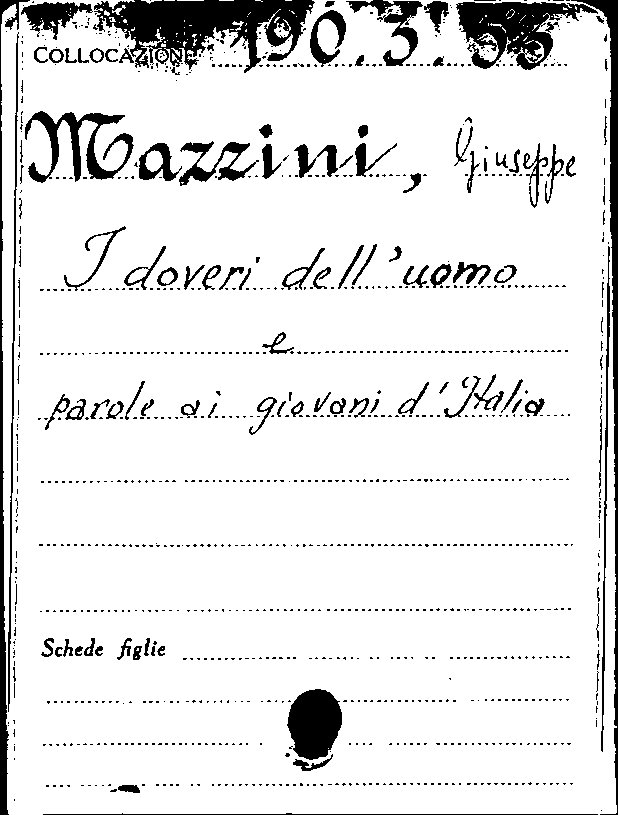 COLLOCAZIONE 190.3.53
Mazzini, Giuseppe
I doveri dell'uomo
e
parole ai giovani d'Italia
Schede figlie